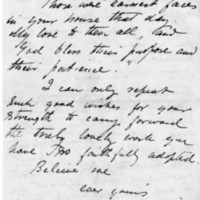 Those were earnest faces
in your house that day.
My love to them all, and
"God bless their purpose and
their patience."
I can only repeat
Such good wishes for your
Strength to carry forward
the truly lovely work you
have so faithfully adopted.
Believe me
ever yours